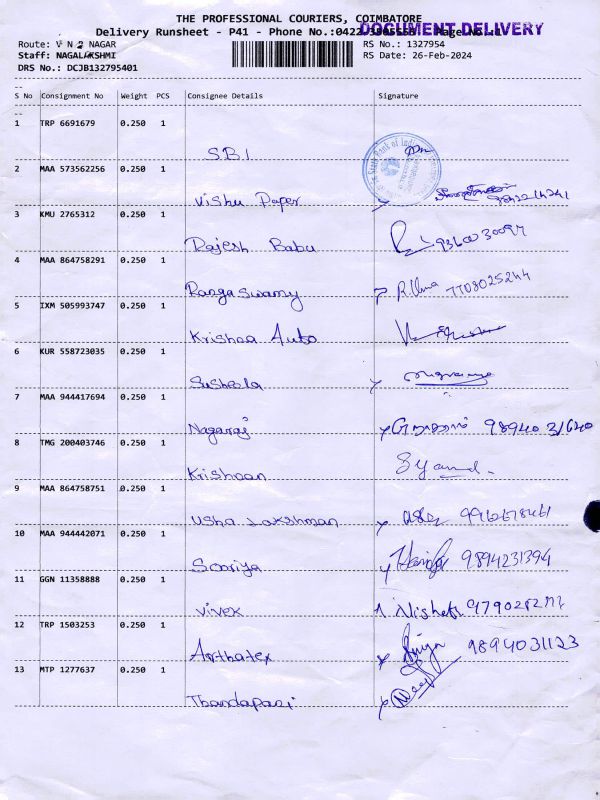 THE PROFESSIONAL COURIERS, COIMBATORE
DOCUMENT DELIVERY
Delivery Runsheet - P41 - Phone No.:0422 Page No.:1
Route: V N 2 NAGAR
RS No.: 1327954
Staff: NAGALAKSHMI
RS Date: 26-Feb-2024
DRS No.: DCJB132795401
S No Consignment No Weight PCS Consignee Details Signature
1 TRP 6691679 0.250 1
SBI
2 MAA 573562256 0.250 1
Vishu Paper
3 KMU 2765312 0.250 1
Rajesh Babu 9360030097
4 MAA 864758291 0.250 1
Ranga Swamy R. Uma 7708025244
5 IXM 505993747 0.250 1
Krishna Auto
6 KUR 558723035 0.250 1
Susheela
7 MAA 944417694 0.250 1
Nagaraj 98940 31640
8 TMG 200403746 0.250 1
Krishnan
9 MAA 864758751 0.250 1
Usha Lakshman
10 MAA 944442071 0.250 1
Sooriya 9894231394
11 GGN 11358888 0.250 1
Vivex
12 TRP 1503253 0.250 1
Arthatex 9894031123
13 MTP 1277637 0.250 1
Thandapani